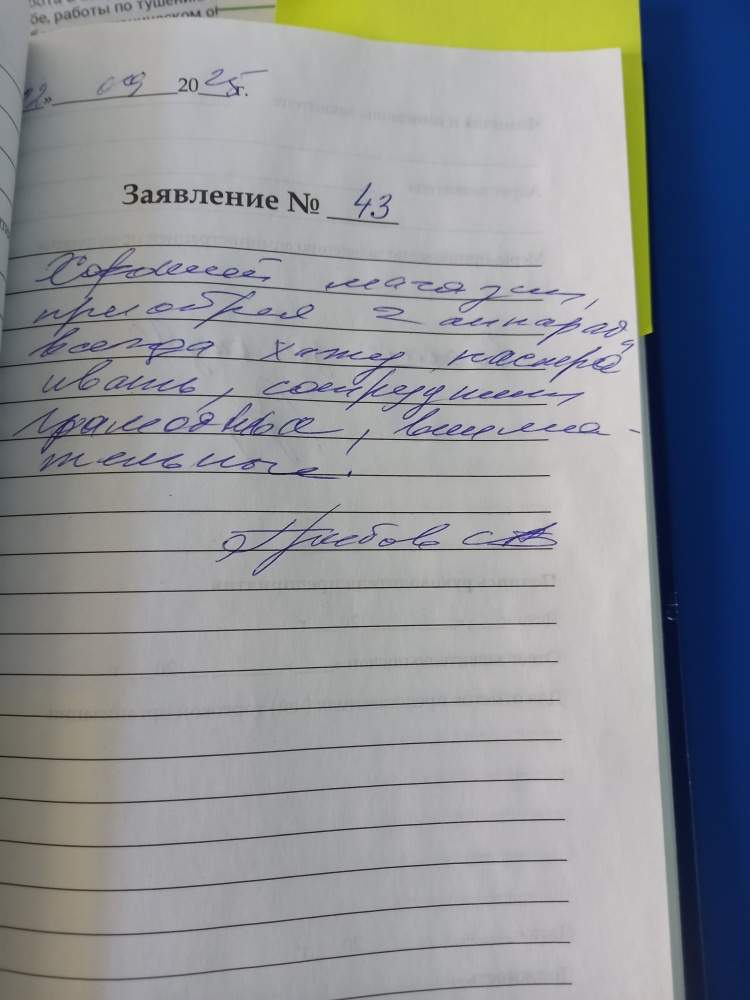 бе, работы по тушению
2» 09 2025 г.
Заявление № 43
Хороший магазин,
приобрел 2 аппарата,
всегда хожу настра
ивать, сотрудники
грамотные, внима-
тельные.